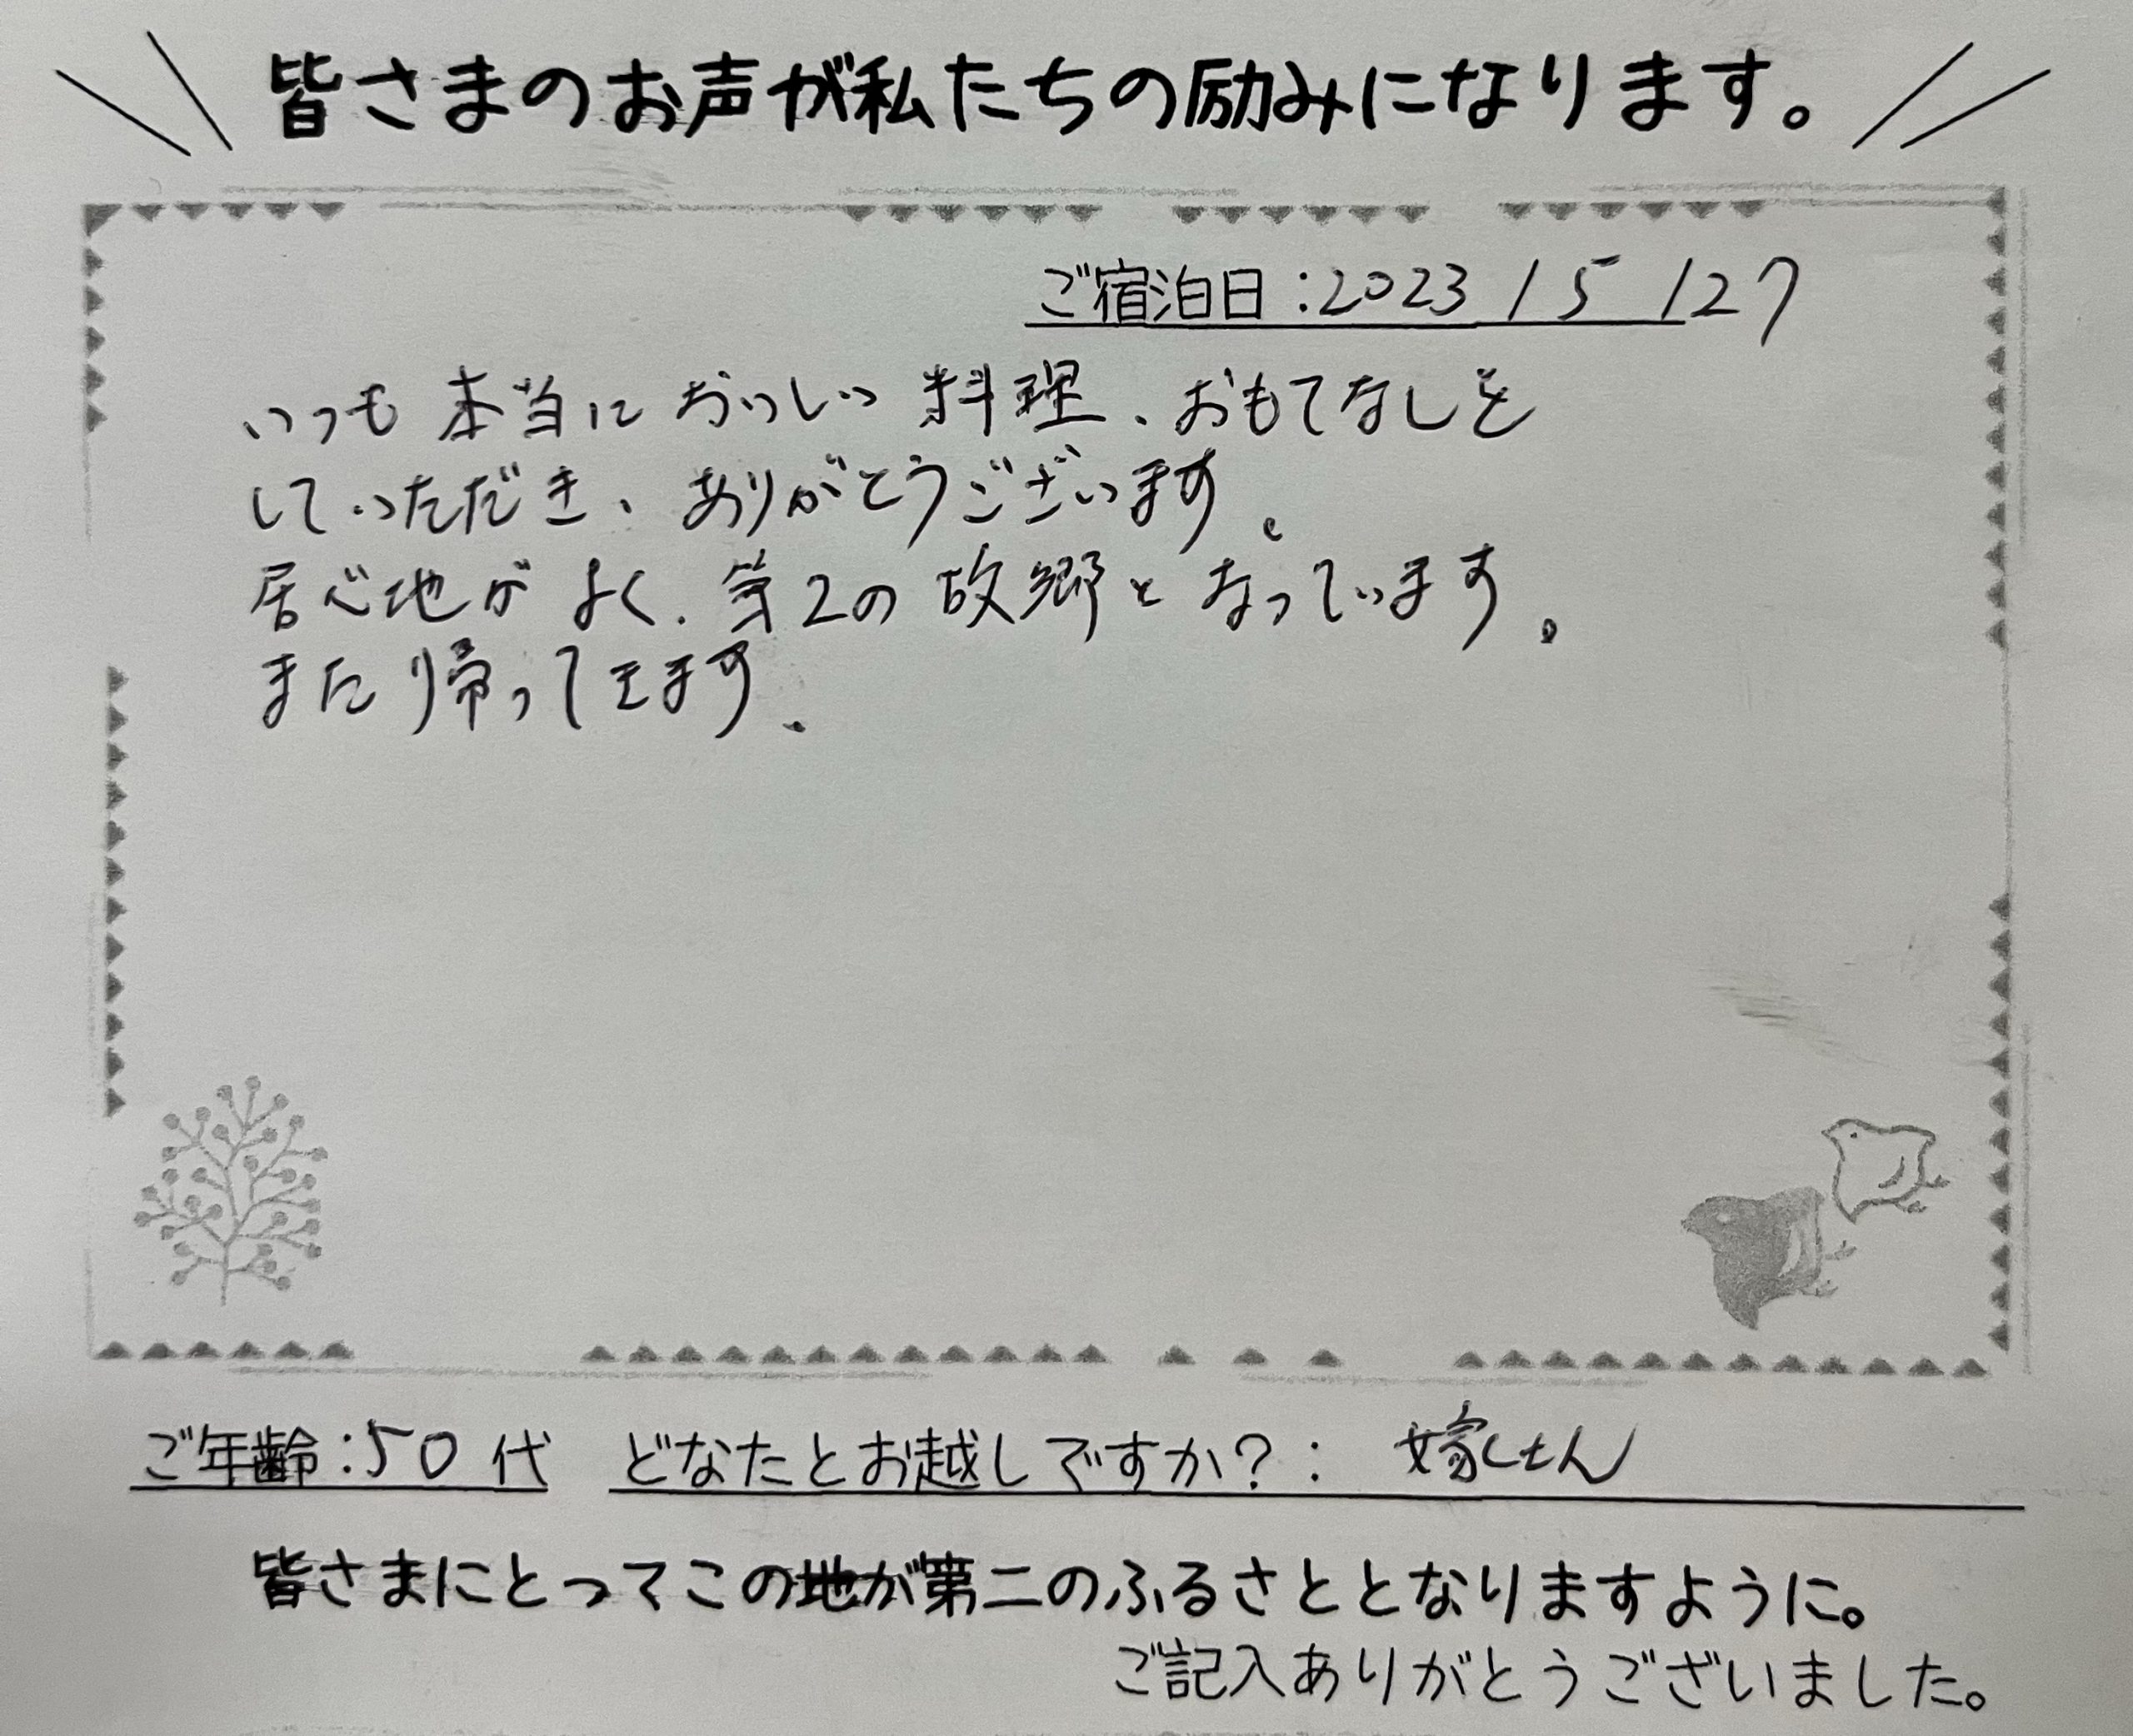 皆さまのお声が私たちの励みになります。
ご宿泊日:2023/5/27
いつも本当においしい料理、おもてなしを
していただき、ありがとうございます。
居心地がよく、第2の故郷となっています。
また帰ってきます。
ご年齢:50代 どなたとお越しですか?: 嫁さん
皆さまにとってこの地が第二のふるさととなりますように。
ご記入ありがとうございました。